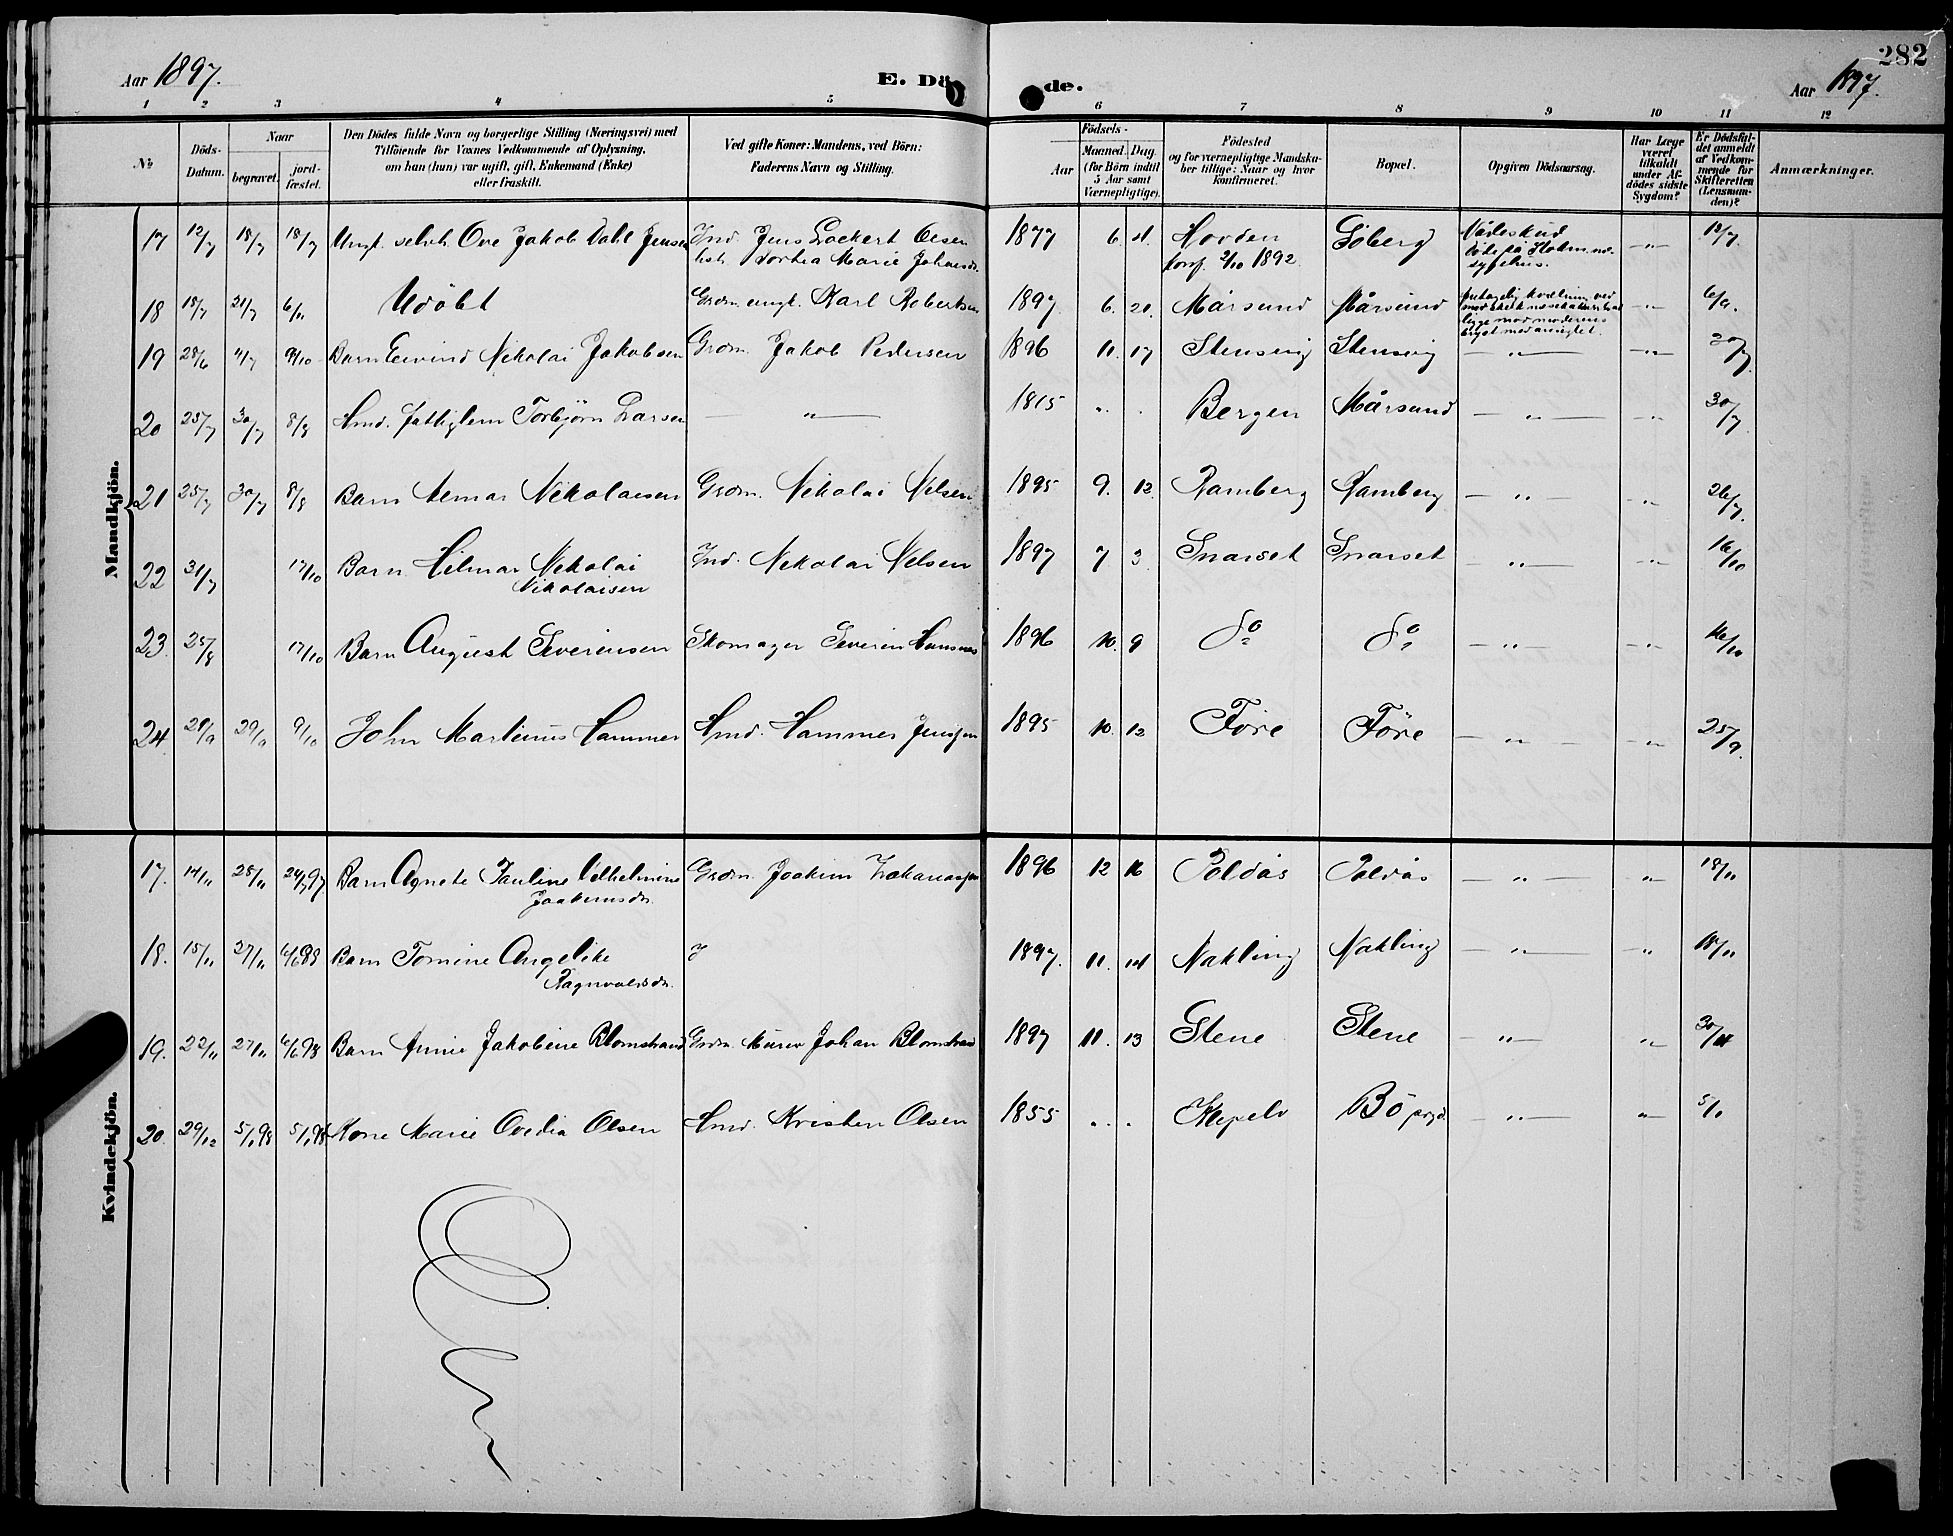 282
Aar 1897.
E. Dö de.
Aar 1897.
1 2 3 4 5 6 7 8 9 10 11 12
No
Döds-Datum.
Naar
begravet.
jord-fæstet.
Den Dödes fulde Navn og borgerlige Stilling (Næringsvei) med
Tilföiende for Voxnes Vedkommende af Oplysning,
om han (hun) var ugift, gift, Enkemand (Enke)
eller fraskilt.
Ved gifte Koner: Mandens, ved Börn:
Faderens Navn og Stilling.
Födsels-
Aar
Maaned. Dag.
(for Börn indtil
5 Aar samt
Værnepligtige).
Födested
og for værnepligtige Mandska-
ber tillige: Naar og hvor
konfirmeret.
Bopæl.
Opgiven Dödsaarsag.
Har Læge
været
tilkaldt
under Af-
dödes sidste
Sygdom?
Er Dödsfal-
det anmeldt
af Vedkom-
mende for
Skifteretten
(Lensman-
den)?
Anmærkninger.
Mandkjön.
17 12/7 18/7 18/7 Ungk. selvh. Ove Jakob Dahl Jensen Ind. Jens Lockert Olsen 1877 6. 4. Hovden Göberg Vådeskud — " — 12/7.
Dortea Marie konf. 2/10 1892.
18 18/7 21/7 6/11 Udöbt Grdm. ungk. Karl Robertsen 1897 6. 20. Mårsund Mårsund — " —
19 28/6 4/7 9/10 Barn Eivind Nikolai Jakobsen Grdm. Jakob Pedersen 1896 11. 17 Stensvig Stensvig — " — — " — 30/7
20 25/7 30/7 8/8 Torbjörn Larsen — " — 1815 " . Bergen Mårsund — " — — " — 30/7
21 25/7 30/7 8/8 Barn Nikolaisen Grdm. Nikolai Nilsen 1895 9. 12. Ramberg Ramberg — " — — " — 26/7.
22 31/7 17/10 Barn Hilmar Nikolai Ind. Nikolai Nilsen 1897 7 3. Snarset Snarset — " — — " — 16/10
Nikolaisen
23. 25/8 17/10 Barn August Severinsen Skomager Severin 1896 10. 9 do do — " — — " — 16/10
24. 9/10 John Martinus Hammer Hammer 1895 10. 12 Före Före — " — — " — 25/9.
Kvindekjön.
17. 14/11 28/11 Barn Agnete Pauline Vilhelmine Grdm. Joakim 1896 12 16 Poldås Poldås — " — " 18/11
Joakimsdr.
18. 15/11 27/11 4/6 98 Barn Tomine Angelike 1897. 11. 14 Nakling Nakling — " — " 18/11
Ragnvaldsdr.
19. 22/11 27/11 4/6 98 Barn Jakobine Blomstrand Grdm. Murer Johan Blomstrand 1897 11. 13 Stene Stene — " — "
20. 29/12 5/1 98 5/1 98 Kone Marie Ovedia Olsen Kristen Olsen 1855 . . Klepelv Bö — " — " 5/1